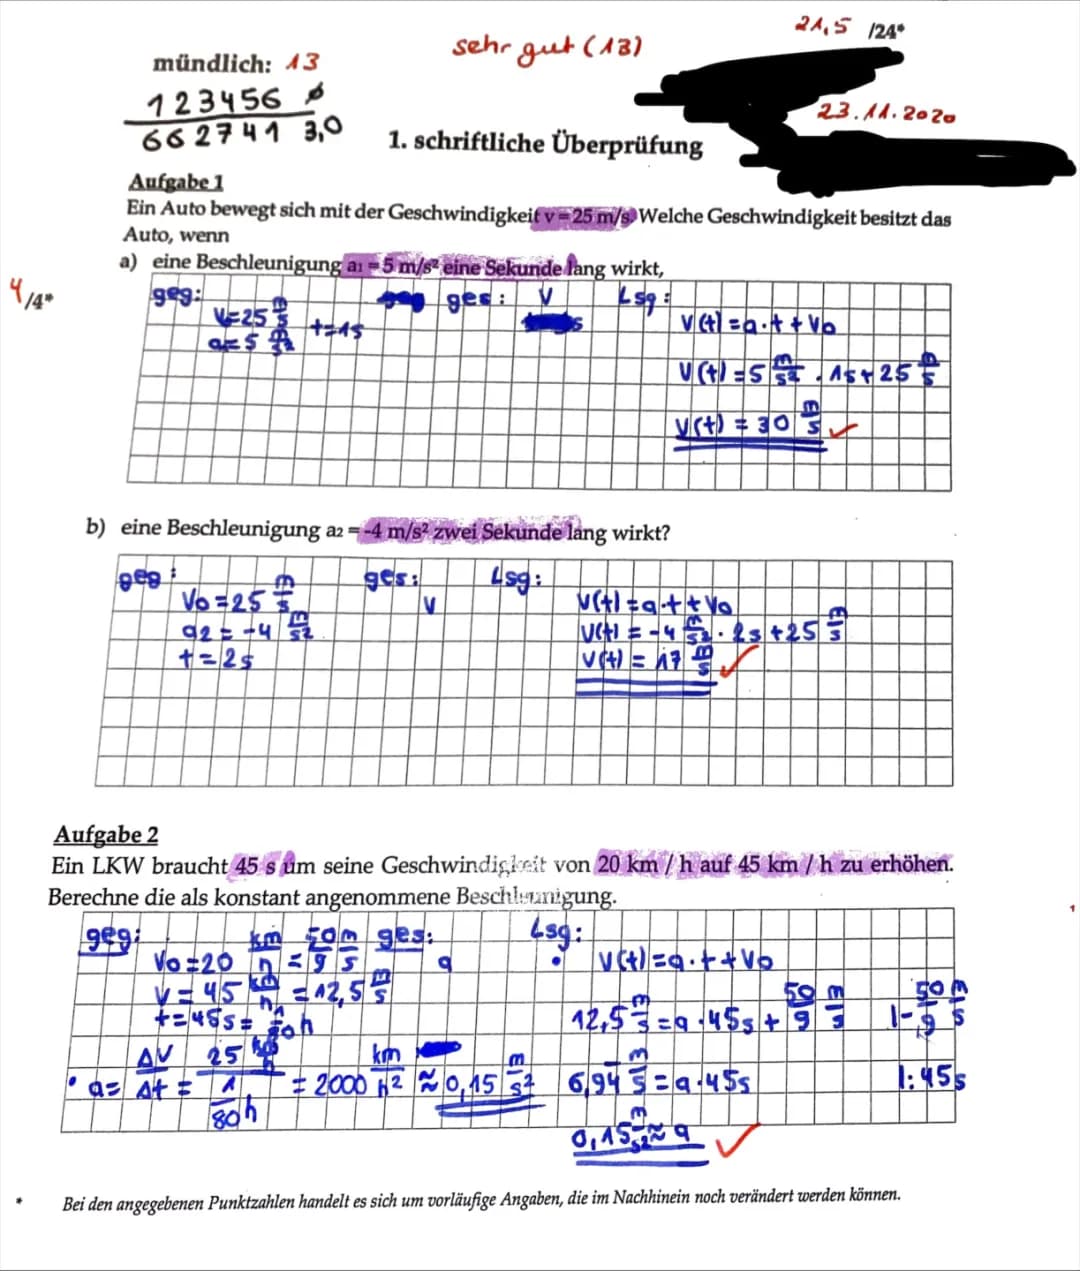 21,5 /24*
sehr gut (13)
mündlich: 13
1 2 3 4 5 6 ø
6 6 2 7 4 1 3,0
23.11.2020
1. schriftliche Überprüfung
Aufgabe 1
Ein Auto bewegt sich mit der Geschwindigkeit v = 25 m/s. Welche Geschwindigkeit besitzt das
Auto, wenn
a) eine Beschleunigung a₁ = 5 m/s² eine Sekunde lang wirkt,
4/4*
geg: ges: v Lsg:
V=25 m/s t=1s
a=5 m/s²
V(t)=a·t+V₀
V(t)=5 m/s² · 1s+25 m/s
V(t) = 30 m/s ✓
b) eine Beschleunigung a₂ = -4 m/s² zwei Sekunde lang wirkt?
geg: ges: Lsg:
V₀=25 m/s v V(t)=a·t+V₀
a₂=-4 m/s² V(t) = -4 m/s² · 2s +25 m/s
t=2s V(t) = 17 m/s ✓
Aufgabe 2
Ein LKW braucht 45 s um seine Geschwindigkeit von 20 km / h auf 45 km / h zu erhöhen.
Berechne die als konstant angenommene Beschleunigung.
geg: ges: Lsg:
V₀=20 km/h = 50/9 m/s a V(t)=a·t+V₀
V=45 km/h = 12,5 m/s
t=45s= 1/80 h 12,5 m/s = a·45s + 50/9 m/s |- 50/9 m/s
a= ΔV/Δt = 25 km/h / 1/80 h = 2000 km/h² ≈ 0,15 m/s² 6,94 m/s = a·45s |:45s
0,15 m/s² ≈ a ✓
* Bei den angegebenen Punktzahlen handelt es sich um vorläufige Angaben, die im Nachhinein noch verändert werden können.